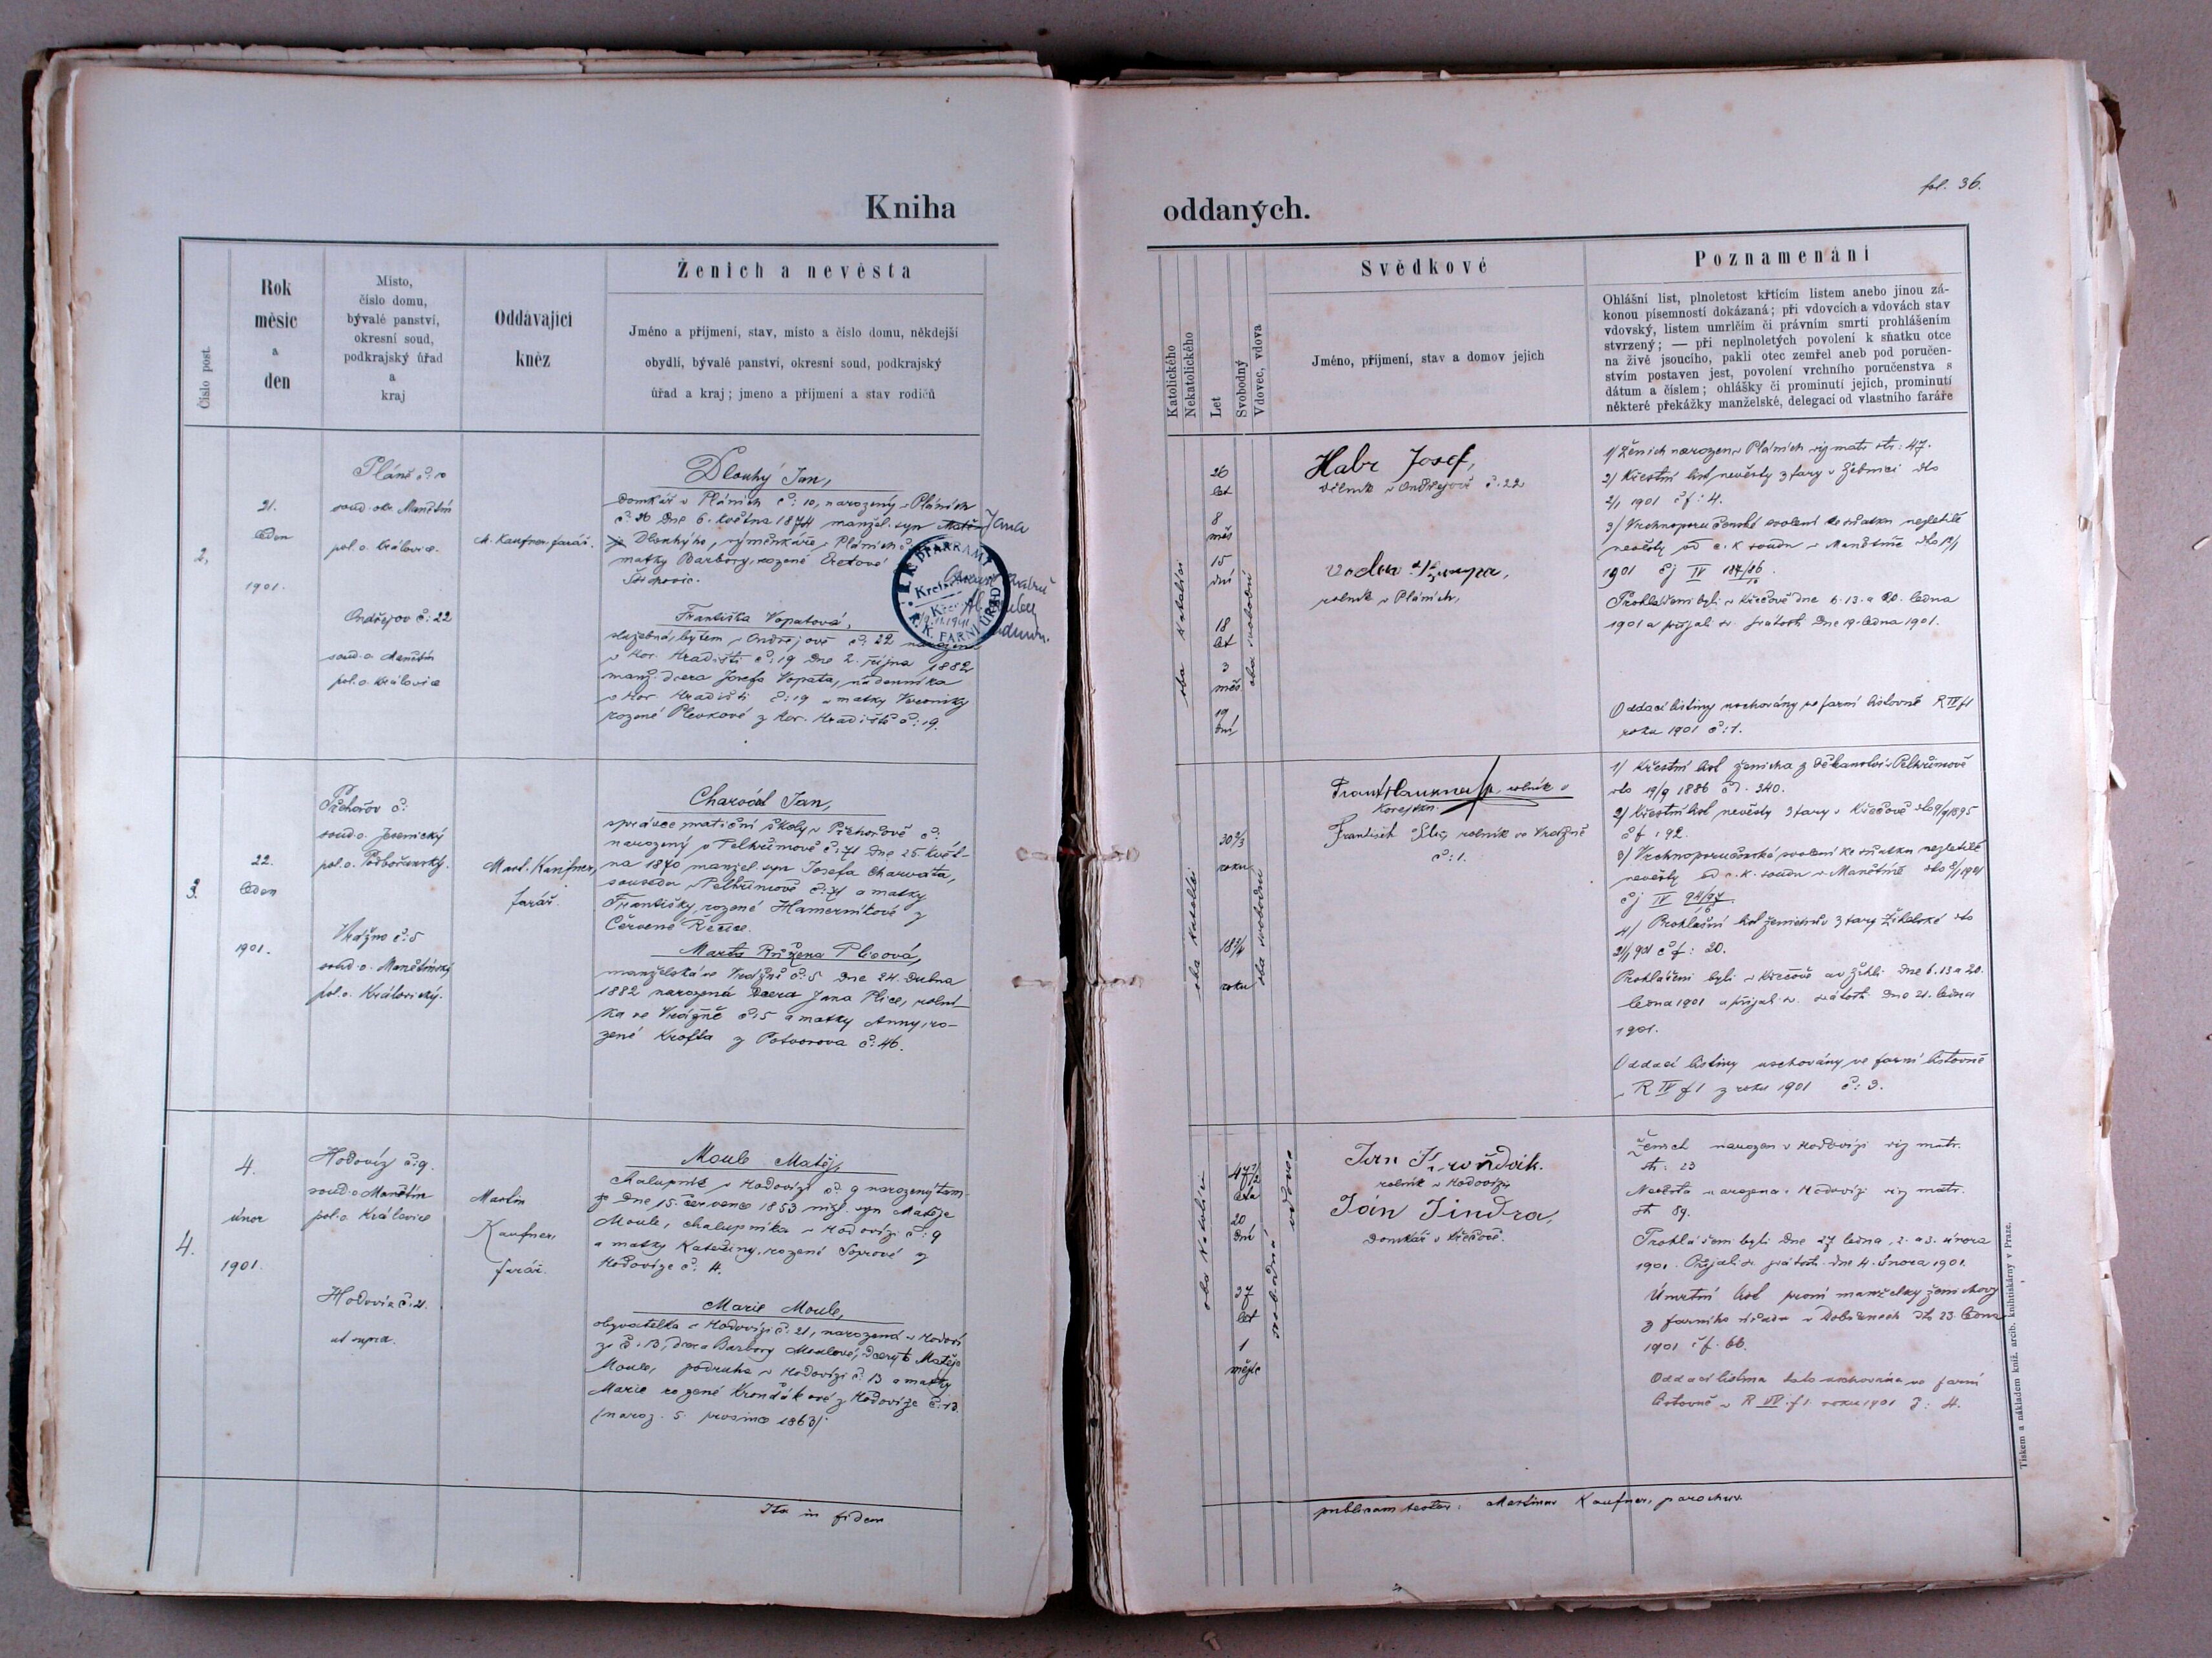 Kniha
oddaných.
fol. 36.
Číslo post.
Rok
měsíc
a
den
Místo,
číslo domu,
bývalé panství,
okresní soud,
podkrajský úřad
a
kraj
Oddávající
kněz
Ženich a nevěsta
Jméno a příjmení, stav, místo a číslo domu, někdejší
obydlí, bývalé panství, okresní soud, podkrajský
úřad a kraj; jmeno a příjmení a stav rodičů
Katolického
Nekatolického
Let
Svobodný
Vdovec, vdova
Svědkové
Jméno, příjmení, stav a domov jejich
Poznamenání
Ohlášní list, plnoletost křtícím listem anebo jinou zá-
konou písemností dokázaná; při vdovcích a vdovách stav
vdovský, listem umrlčím či právním smrti prohlášením
stvrzený; — při neplnoletých povolení k sňatku otce
na živě jsoucího, pakli otec zemřel aneb pod poručen-
stvím postaven jest, povolení vrchního poručenstva s
dátum a číslem; ohlášky či prominutí jejich, prominutí
některé překážky manželské, delegací od vlastního faráře
2,
21.
leden
1901.
Pláně č: 10
soud. okr. Manětín
pol. o. Královice.
Ondřejov č: 22
soud. o. Manětín
pol. o. Královice
M. Kaufner farář.
Dlouhý Jan,
domkář v Pláních č: 10, narozený v Pláních
č: 26 dne 6. května 1874 manžel. syn Matě- Jana
je Dlouhýho, výměnkáře v Pláních č
matky Barbory, rozené
Františka Vopatová,
služebná, bytem v Ondřejově č: 22
v Kor. Hradišti č: 19 dne 2. října 1882
manž. dcera Josefa Vopata, nádenníka
v Kor. Hradišti č: 19 a matky Veroniky
rozené Plevkové z Kor. Hradiště č: 19.
K. FARNÍ ÚŘAD
oba katolíci
26
let
8
měs
15
dní
18
let
3
měs
19
dní
oba svobodní
Habr Josef,
dělník v Ondřejově č. 22
rolník v Pláních,
1/ Ženich narozen v Pláních viz matr. str: 47.
2/ Křestní list nevěsty z fary v Žebnici dto
2/1 1901 čf: 4.
3/ Vrchnoporučenské svolení ke sňatku nezletilé
nevěsty od c. k. soudu v Manětíně dto
1901 čj IV 187/86
Prohlášeni byli v Křečově dne 6. 13. a 20. ledna
1901 a přijali sv. svátosti dne 19. ledna 1901.
Oddací listiny uschovány ve farní listovně R IV f1
roku 1901 č: 1.
3.
22.
leden
1901.
soud. o. Jesenický
pol. o. Podbořanský.
Vrážno č: 5
soud. o. Manětínský
pol. o. Královický.
Mart. Kaufner,
farář.
Charvát Jan,
správce matiční školy v
narozený v Pelhřimově č: 71 dne 25. květ-
na 1870 manžel. syn Josefa Charváta,
souseda v Pelhřimově č: 71 a matky
Františky, rozené Hamerníkové z
Červené Řečice.
Marta Růžena Plicová,
manželská ve Vrážně č: 5 dne 24. dubna
1882 narozená dcera Jana Plice, rolní-
ka ve Vrážně č: 5 a matky Anny, ro-
zené Krofta z Potvorova č: 46.
oba katolíci
roku
18 3/4
roku
oba svobodní
rolník
František Plic, rolník ve Vrážně
č: 1.
1/ Křestní list ženicha z děkanství v Pelhřimově
dto 19/9 1886 čd. 340.
2/ Křestní list nevěsty z fary v Křečově
čf: 92.
3/ Vrchnoporučenské svolení ke sňatku nezletilé
nevěsty od c. k. soudu v Manětíně
čj IV 94/97
4/ Prohlášní list ženichův z fary Žihelské dto
21/1 901 čf: 20.
Prohlášeni byli v Křečově a v Žihli dne 6. 13 a 20.
ledna 1901 a přijali sv. svátosti dne 21. ledna
1901.
Oddací listiny uschovány ve farní listovně
R IV f1 z roku 1901 č: 3.
4.
4.
únor
1901.
Hodovíz č: 9.
soud. o Manětín
pol. o. Královice
Hodovíz č: 21.
ut supra.
Martin
Kaufner,
farář.
Moule Matěj,
chalupník v Hodovízi č: 9 narozený tam-
že dne 15. července 1853 mžl. syn Matěje
Moule, chalupníka v Hodovízi č: 9
a matky Kateřiny, rozené Soprové z
Hodovíze č: 4.
Marie Moule,
obyvatelka v Hodovízi č: 21, narozená v Hodoví-
zi č: 13, dcera Barbory Moulové, dcery † Matěje
Moule, podruha v Hodovízi č. 13 a matky
Marie rozené Krondákové z Hodovíze č: 13.
/naroz. 5. prosince 1863/.
oba katolíci
47 1/2
léta
20
dní
37
let
1
měsíc
svobodná
vdovec
rolník v Hodovízi
Ján Jindra,
domkář v Křečově.
Ženich narozen v Hodovízi viz matr.
str: 23
Nevěsta narozena v Hodovízi viz matr.
str 89.
Prohlášeni byli dne 27 ledna, 2. a 3. února
1901. Přijali sv. svátosti dne 4. února 1901.
Úmrtní list první manželky ženichovy
z farního úřadu v Dobřanech dto 23. ledna
1901 čf. 66.
Oddací listina tato uschována ve farní
listovně v R IV. f1. roku 1901 č: 4.
Ita in fidem
publicam testor: Martinus Kaufner, parochus.
Tiskem a nákladem kníž. arcib. knihtiskárny v Praze.